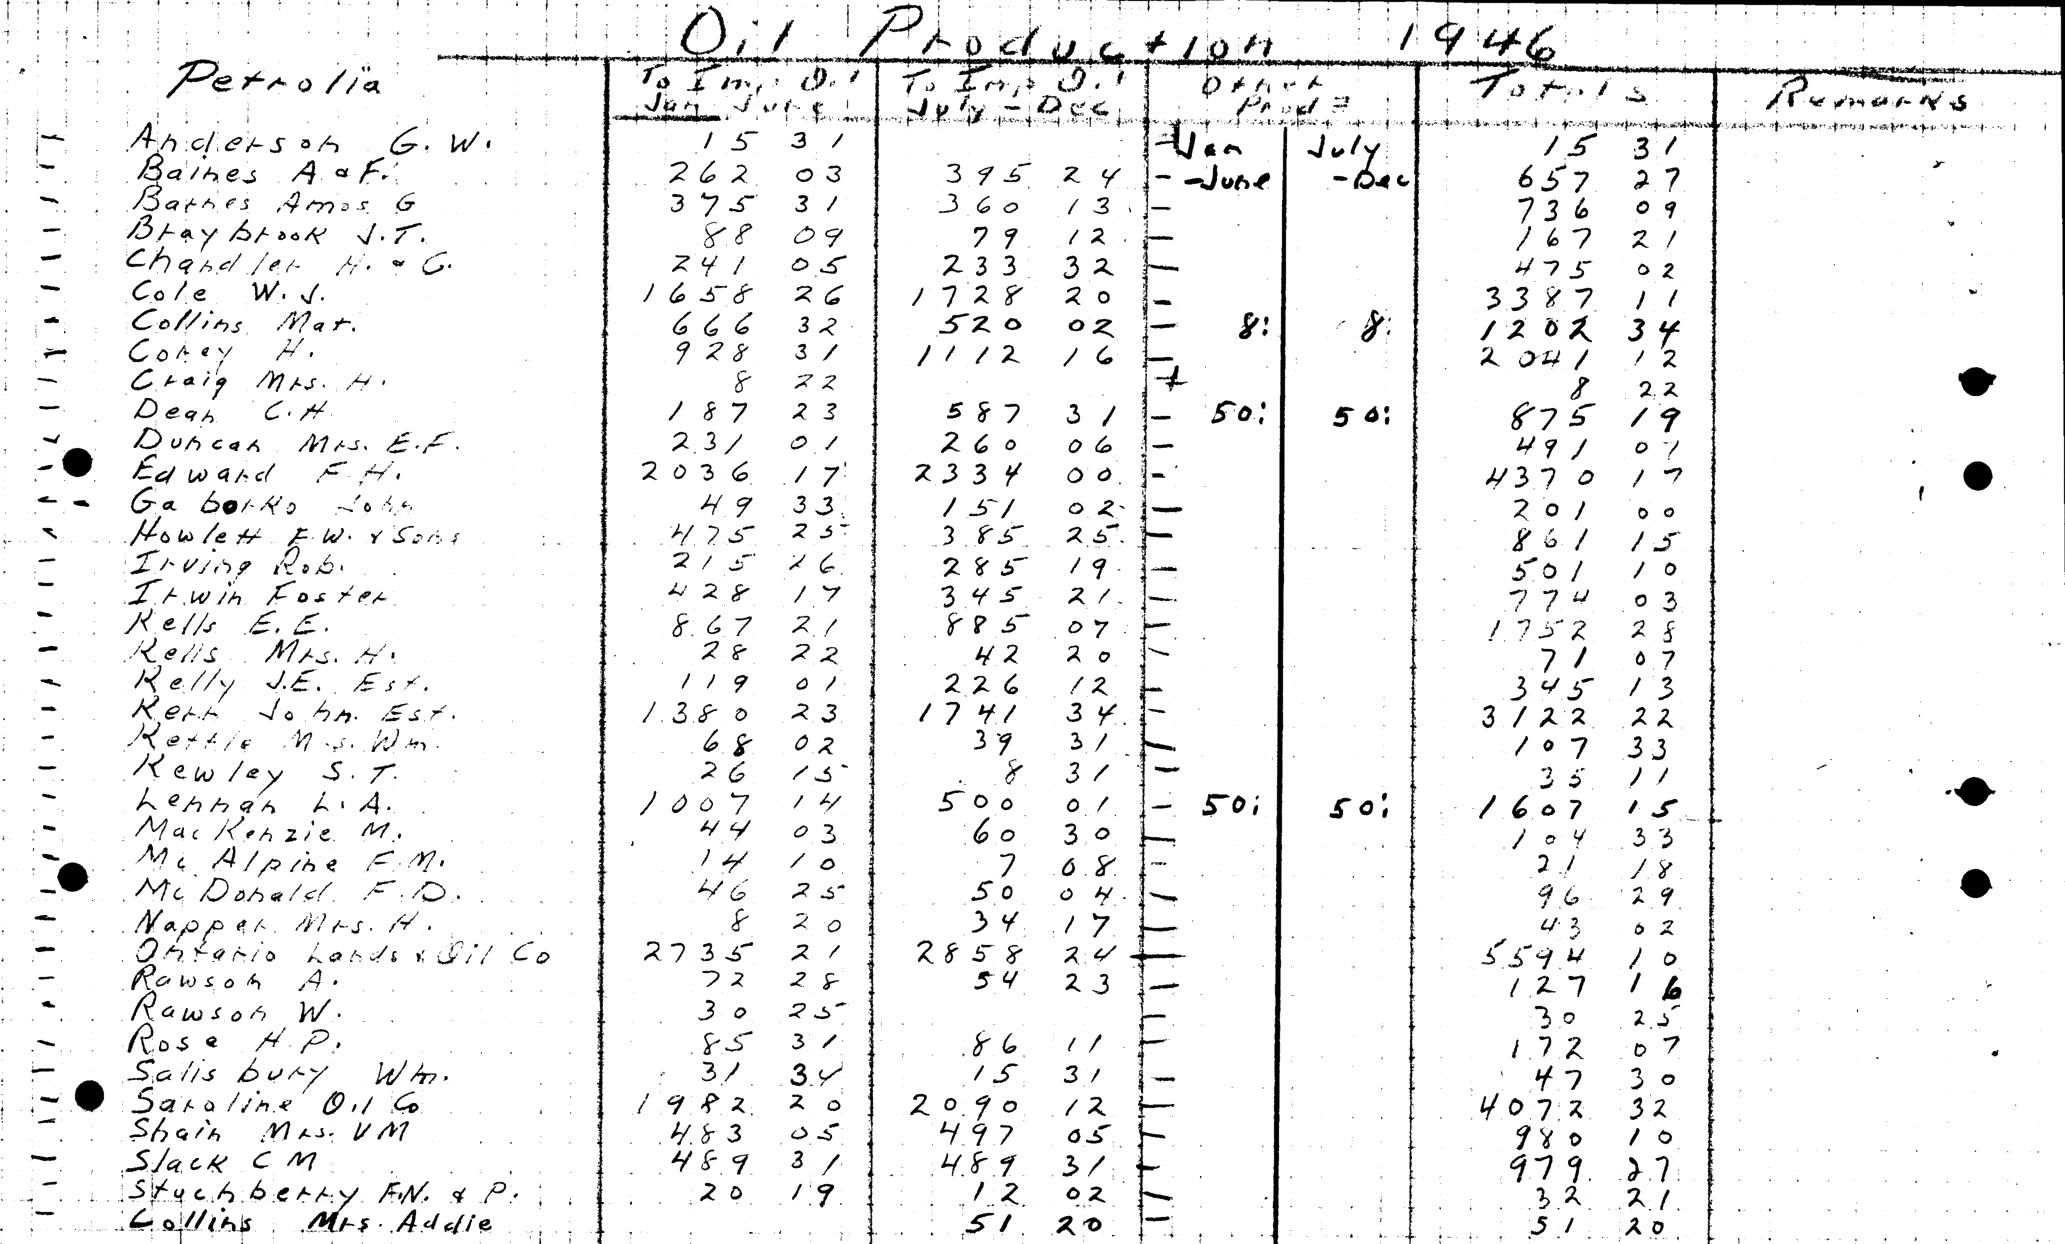 Oil Production 1946
Petrolia To Imp Oil To Imp Oil Other Totals Remarks
Jan June July - Dec Prod=
Anderson G. W. 15 31 Jan July 15 31
Baines A & F. 262 03 395 24 - -June -Dec 657 27
Barnes Amos G 375 31 360 13 - 736 09
Braybrook J.T. 88 09 79 12 - 167 21
Chandler H. & G. 241 05 233 32 - 475 02
Cole W.J. 1658 26 1728 20 - 3387 11
Collins Mat. 666 32 520 02 - 8: 8: 1202 34
Corey H. 928 31 1112 16 - 2041 12
Craig Mrs. H. 8 22 + 8 22
Dean C.H. 187 23 587 31 - 50: 50: 875 19
Duncan Mrs. E.F. 231 01 260 06 - 491 07
Edward F.H. 2036 17 2334 00 - 4370 17
Gaborko John 49 33 151 02 - 201 00
Howlett F.W. & Sons 475 25 385 25 - 861 15
Irving Rob. 215 26 285 19 - 501 10
Irwin Foster 428 17 345 21 - 774 03
Kells E.E. 867 21 885 07 - 1752 28
Kells Mrs. H. 28 22 42 20 - 71 07
Kelly J.E. Est. 119 01 226 12 - 345 13
Kerr John Est. 1380 23 1741 34 - 3122 22
Kettle Mrs. Wm. 68 02 39 31 - 107 33
Kewley S.T. 26 15 8 31 - 35 11
Lennan L.A. 1007 14 500 01 - 50: 50: 1607 15
MacKenzie M. 44 03 60 30 - 104 33
McAlpine F.M. 14 10 7 08 - 21 18
McDonald F.D. 46 25 50 04 - 96 29
Napper Mrs. H. 8 20 34 17 - 43 02
Ontario Lands & Oil Co 2735 21 2858 24 - 5594 10
Rawson A. 72 28 54 23 - 127 16
Rawson W. 30 25 - 30 25
Rose H.P. 85 31 86 11 - 172 07
Salisbury Wm. 31 34 15 31 - 47 30
Saroline Oil Co 1982 20 2090 12 - 4072 32
Shain Mrs. VM 483 05 497 05 - 980 10
Slack C M 489 31 489 31 - 979 27
Stuchberry F.N. & P. 20 19 12 02 - 32 21
Collins Mrs. Addie 51 20 - 51 20